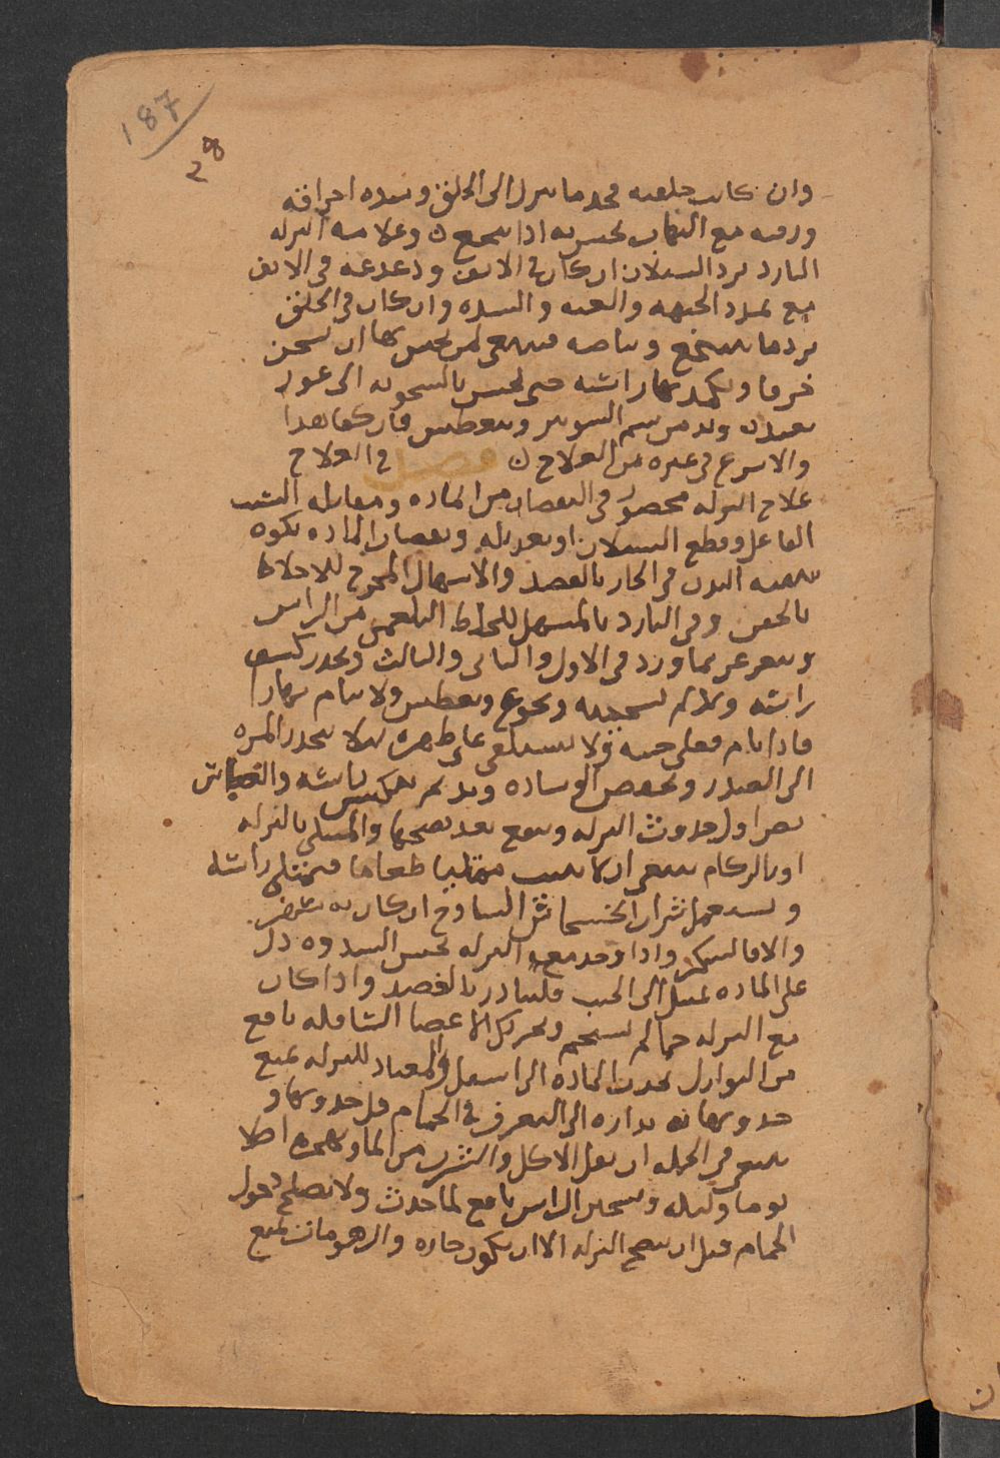 187
28
وان كانت حلقيه فحده ما ينزل الى الحلق وشده احراقه
ورقته مع التهاب يحس به اذا تنخع ن وعلامه النزله
البارده برد السيلان ان كان في الانف ودغدغه في الانف
مع تمدد الجبهه والسده وان كان في الحلق
برد ما يتنخع وبياضه فينبغي لمن يحس بها ان يسخن
خرقا ويكمد بها راسه حتى يحس بالسخونه الى غور
بعيد ن ويدمن شم الشونيز ويتعطش فان كفا هذا
والا شرع في غيره من العلاج ن فصل في العلاج
علاج النزله محصور في النقصان من الماده ومقابله السبب
الفاعل وقطع السيلان او تعديله ونقصان الماده يكون
بتنقيه البدن في الحار بالفصد والاسهال المخرج للاخلاط
بالحقن وفي البارد بالمسهل للخلط البلغمي من الراس
ويتغرغر بما ورد في الاول والثاني والثالث ويحذر كشف
راسه ويلازم تسخينه ويجوع ويعطش ولا ينام نهارا
فاذا نام فعلى جنبه ولا يستلقي على ظهره ليلا تنحدر الى
الى الصدر ويخفض الوساده ويديم تنكيس راسه والعطاس
يضر اول حدوث النزله وينفع بعد نضجها والمبتلى بالنزله
او بالزكام ينبغي ان لا يبيت ممتليا طعاما فيمتلي راسه
ويستعمل شراب الخشخاش الساذج ان كان به
والا فالسكر واذا وجد مع النزله نخس الثدوه دل
على الماده تميل الى الجنب فليبادر بالفصد واذا كان
مع النزله حما لم يستحم وتحريك الاعضا السافله نافع
من النوازل يجذب الماده الى اسفل والمعتاد للنزله يمنع
حدوثها به بداره الى التعرق في الحمام قبل حدوثها و
ينبغي في الجمله ان يقل الاكل والشرب من الما ويهجره اصلا
يوما وليله وتسخين الراس نافع لما حدث ولا يصلح دخول
الحمام قبل ان تنضج النزله الا ان تكون حاره والدهومات تمنع